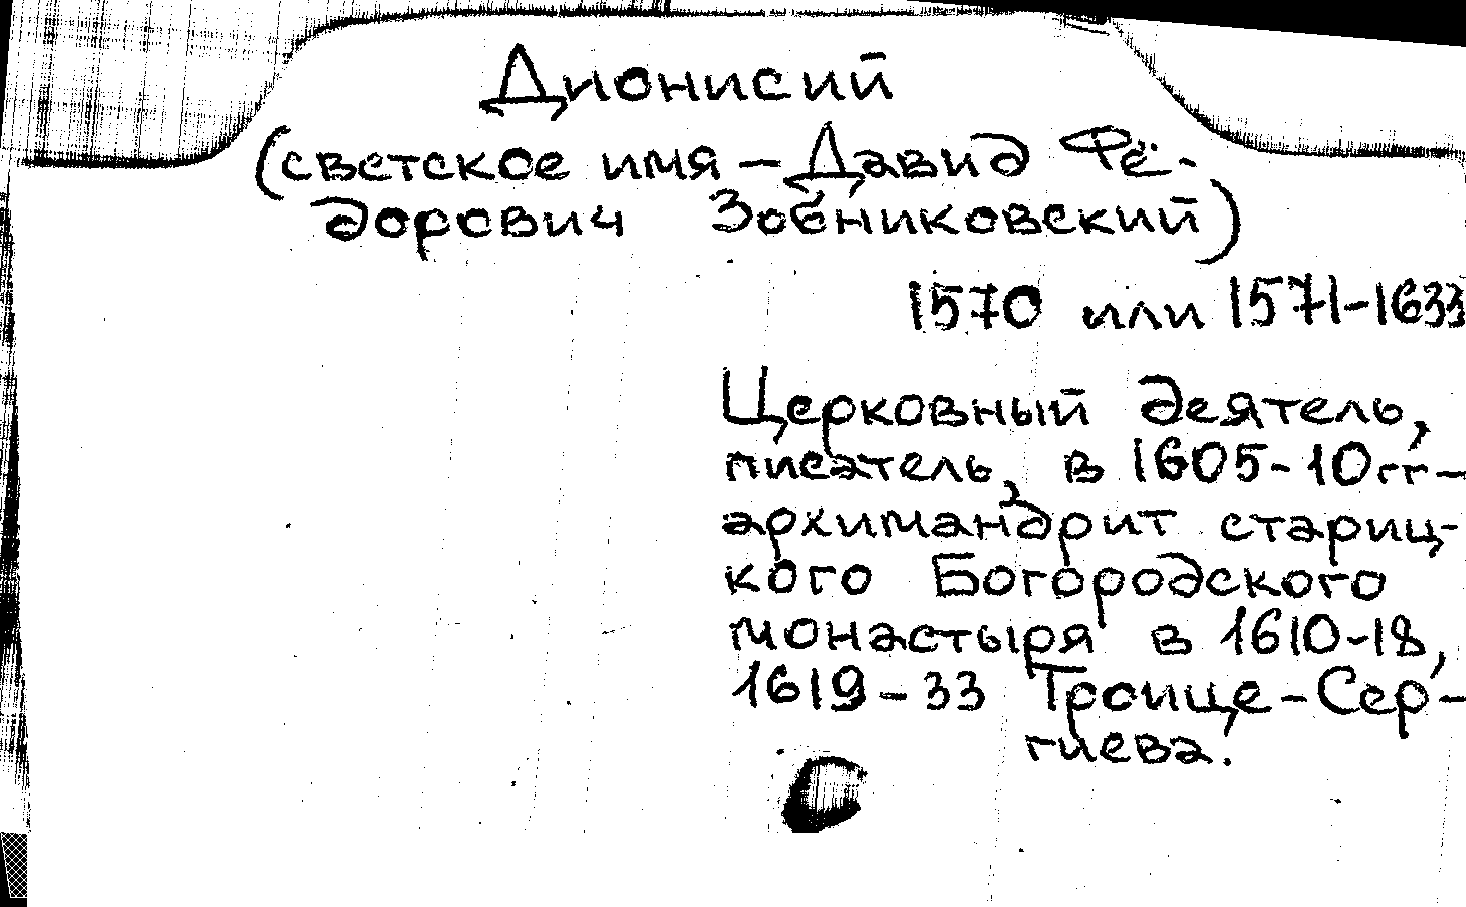 Дионисий
(светское имя – Давид Фё-
дорович Зобниковский)
1570 или 1571-1633
Церковный деятель,
писатель, в 1605-10гг-
архимандрит стариц-
кого Богородского
монастыря в 1610-18,
1619-33 Троице-Сер-
гиева.